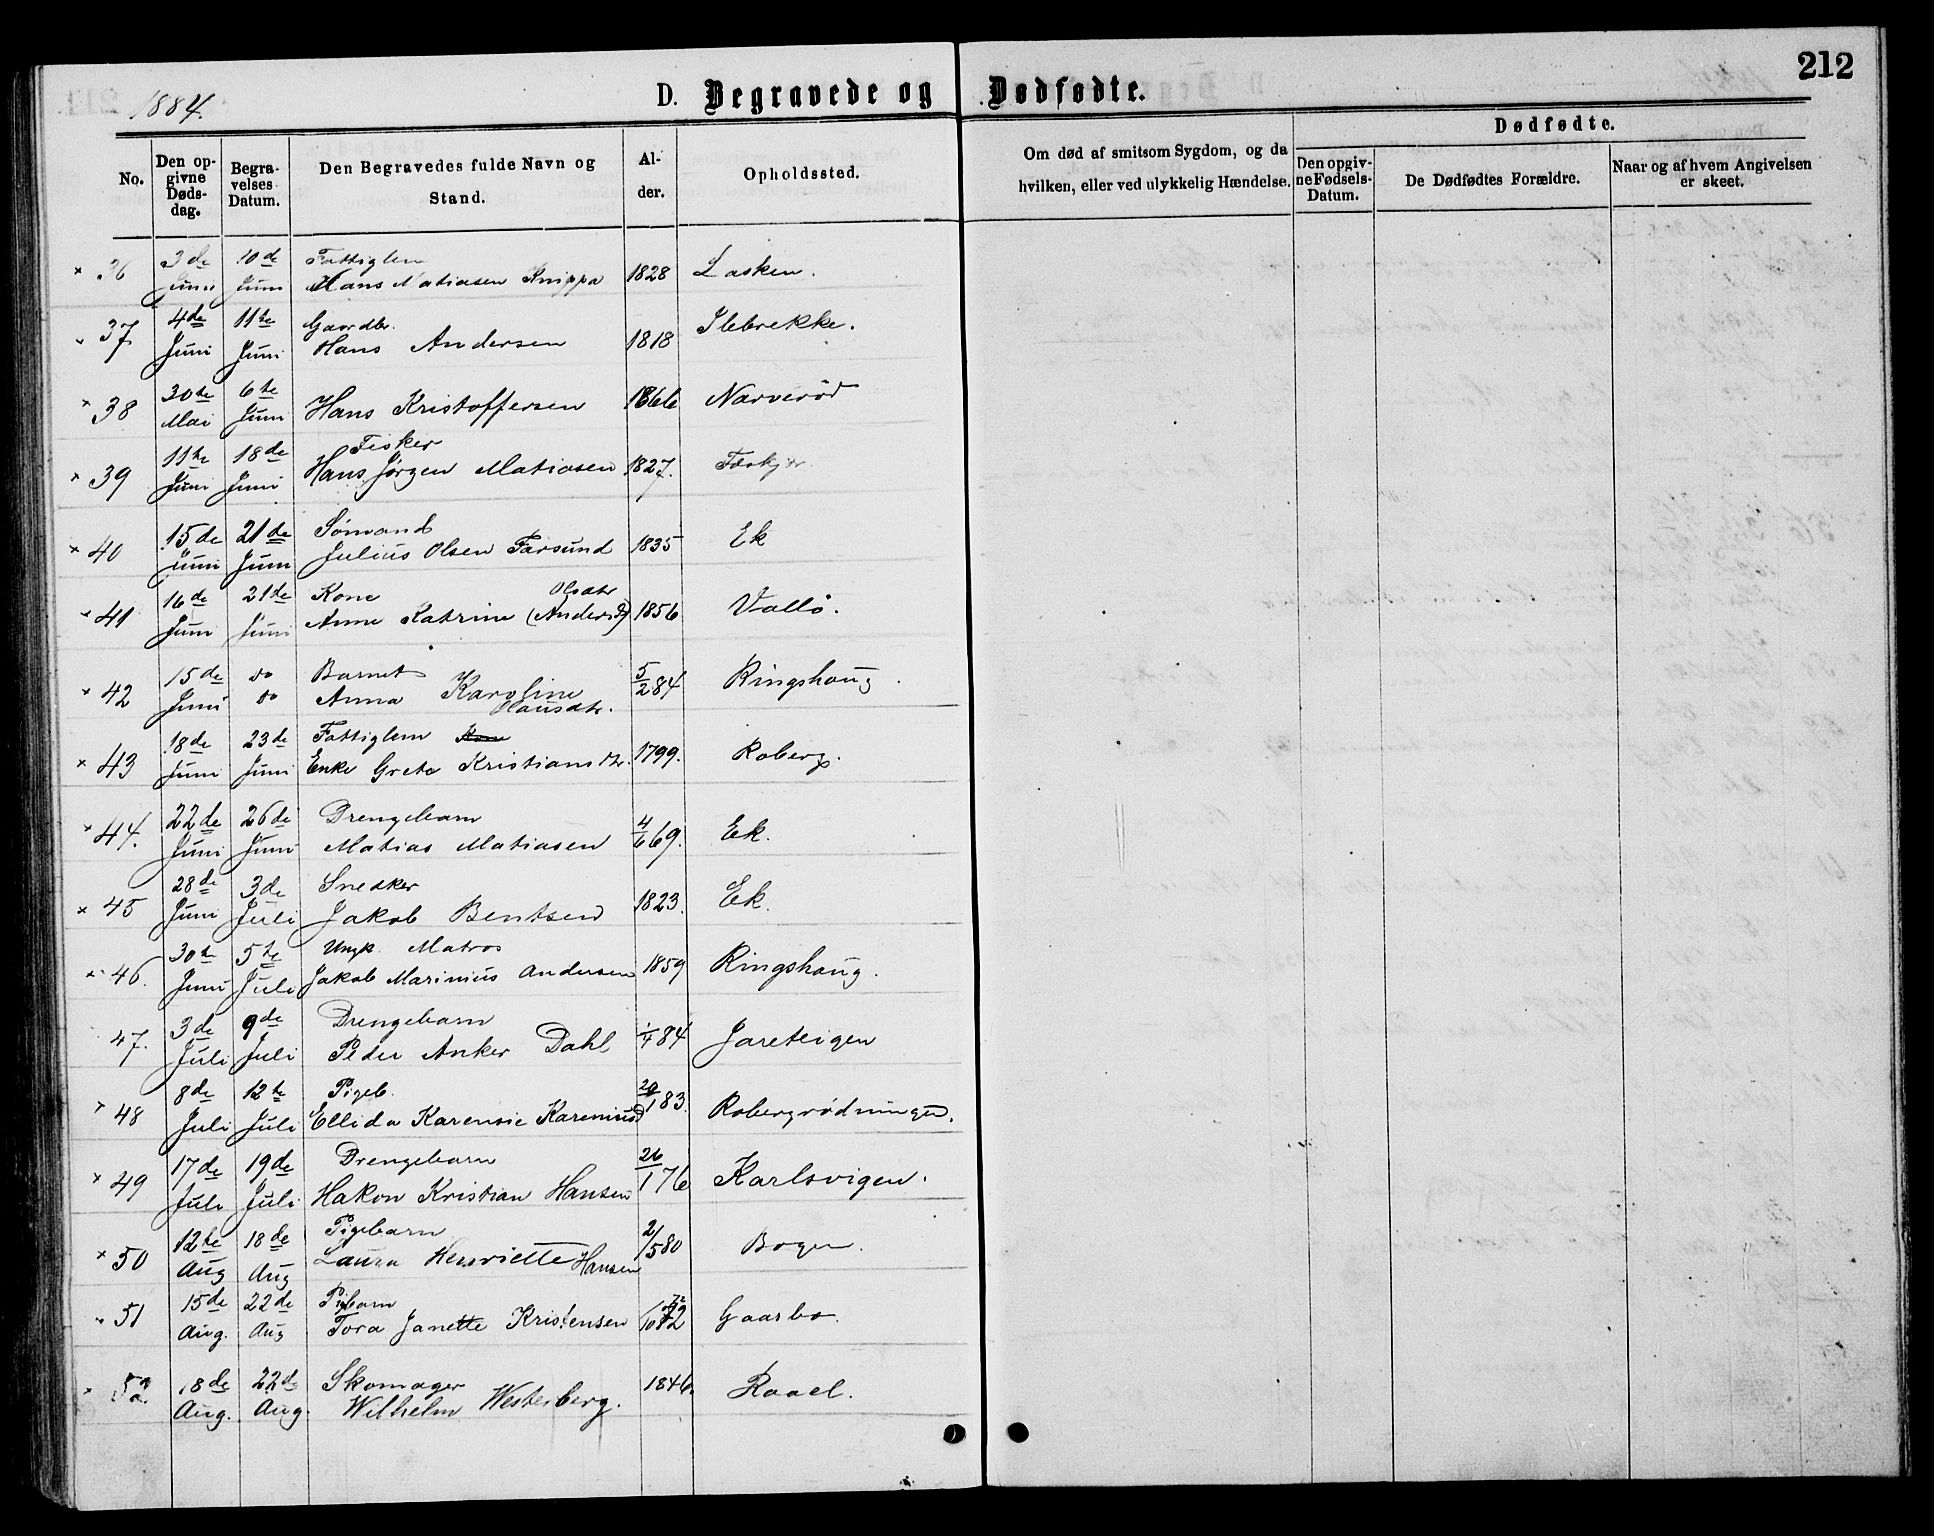 212
1884.
D. Begravede og Dødfødte.
No.
Den opgivne Dødsdag.
Begravelses Datum.
Den Begravedes fulde Navn og Stand.
Alder.
Opholdssted.
Om død af smitsom Sygdom, og da hvilken, eller ved ulykkelig Hændelse.
Dødfødte.
Den opgivne Fødsels-Datum.
De Dødfødtes Forældre.
Naar og af hvem Angivelsen er skeet.
36 3de Juni 10de Juni Fattiglem Hans Matiasen Knippa 1828 Lasken.
37 4de Juni 11te Juni Gaardbr. Hans Andersen 1818 Ilebrekke.
38 30te Mai 6te Juni Hans Kristoffersen 1866 Narverød
39 11te Juni 18de Juni Fisker Hans Jørgen Matiasen 1827.
40 15de Juni 21de Juni Sömand Julius Olsen Farsund 1835 Ek
41 16de Juni 21de Juni Kone Anne Katrine Olsdtr (Anders) 1856 Vallö.
42 15de Juni do do Barnet Anna Karoline Hansdtr. 5/2 84 Ringshoug.
43 18de Juni 23de Juni Fattiglem Kone Enke Grete Kristiansdtr. 1799. Roberg.
44. 22de Juni 26de Juni Drengebarn Matias Matiasen 4/6 69. Ek.
45 28de Juni 3de Juli Snedker Jakob Bentsen 1823. Ek.
46. 30te Juni 5te Juli Ungk. Matros Jakob Marinius Andersen 1859 Ringshoug.
47. 3de Juli 9de Juli Drengebarn Peder Anker Dahl 1/4 84 Jareteigen
48 8de Juli 12te Juli Pigeb. Ellida Karensie Kareniusd 20/1 83. Robergrødningen.
49 17de Juli 19de Juli Drengebarn Hakon Kristian Hansen 26/1 76 Karlsvigen.
50 12te Aug 18de Aug Pigebarn Laura Henriette Hansen 2/5 80 Bogen.
51 15de Aug. 22de Aug Pigbarn Tora Janette Kristensen 72 Gaarbo.
52. 18de Aug. 22de Aug. Skomager Wilhelm Westerberg. 1846. Raael.